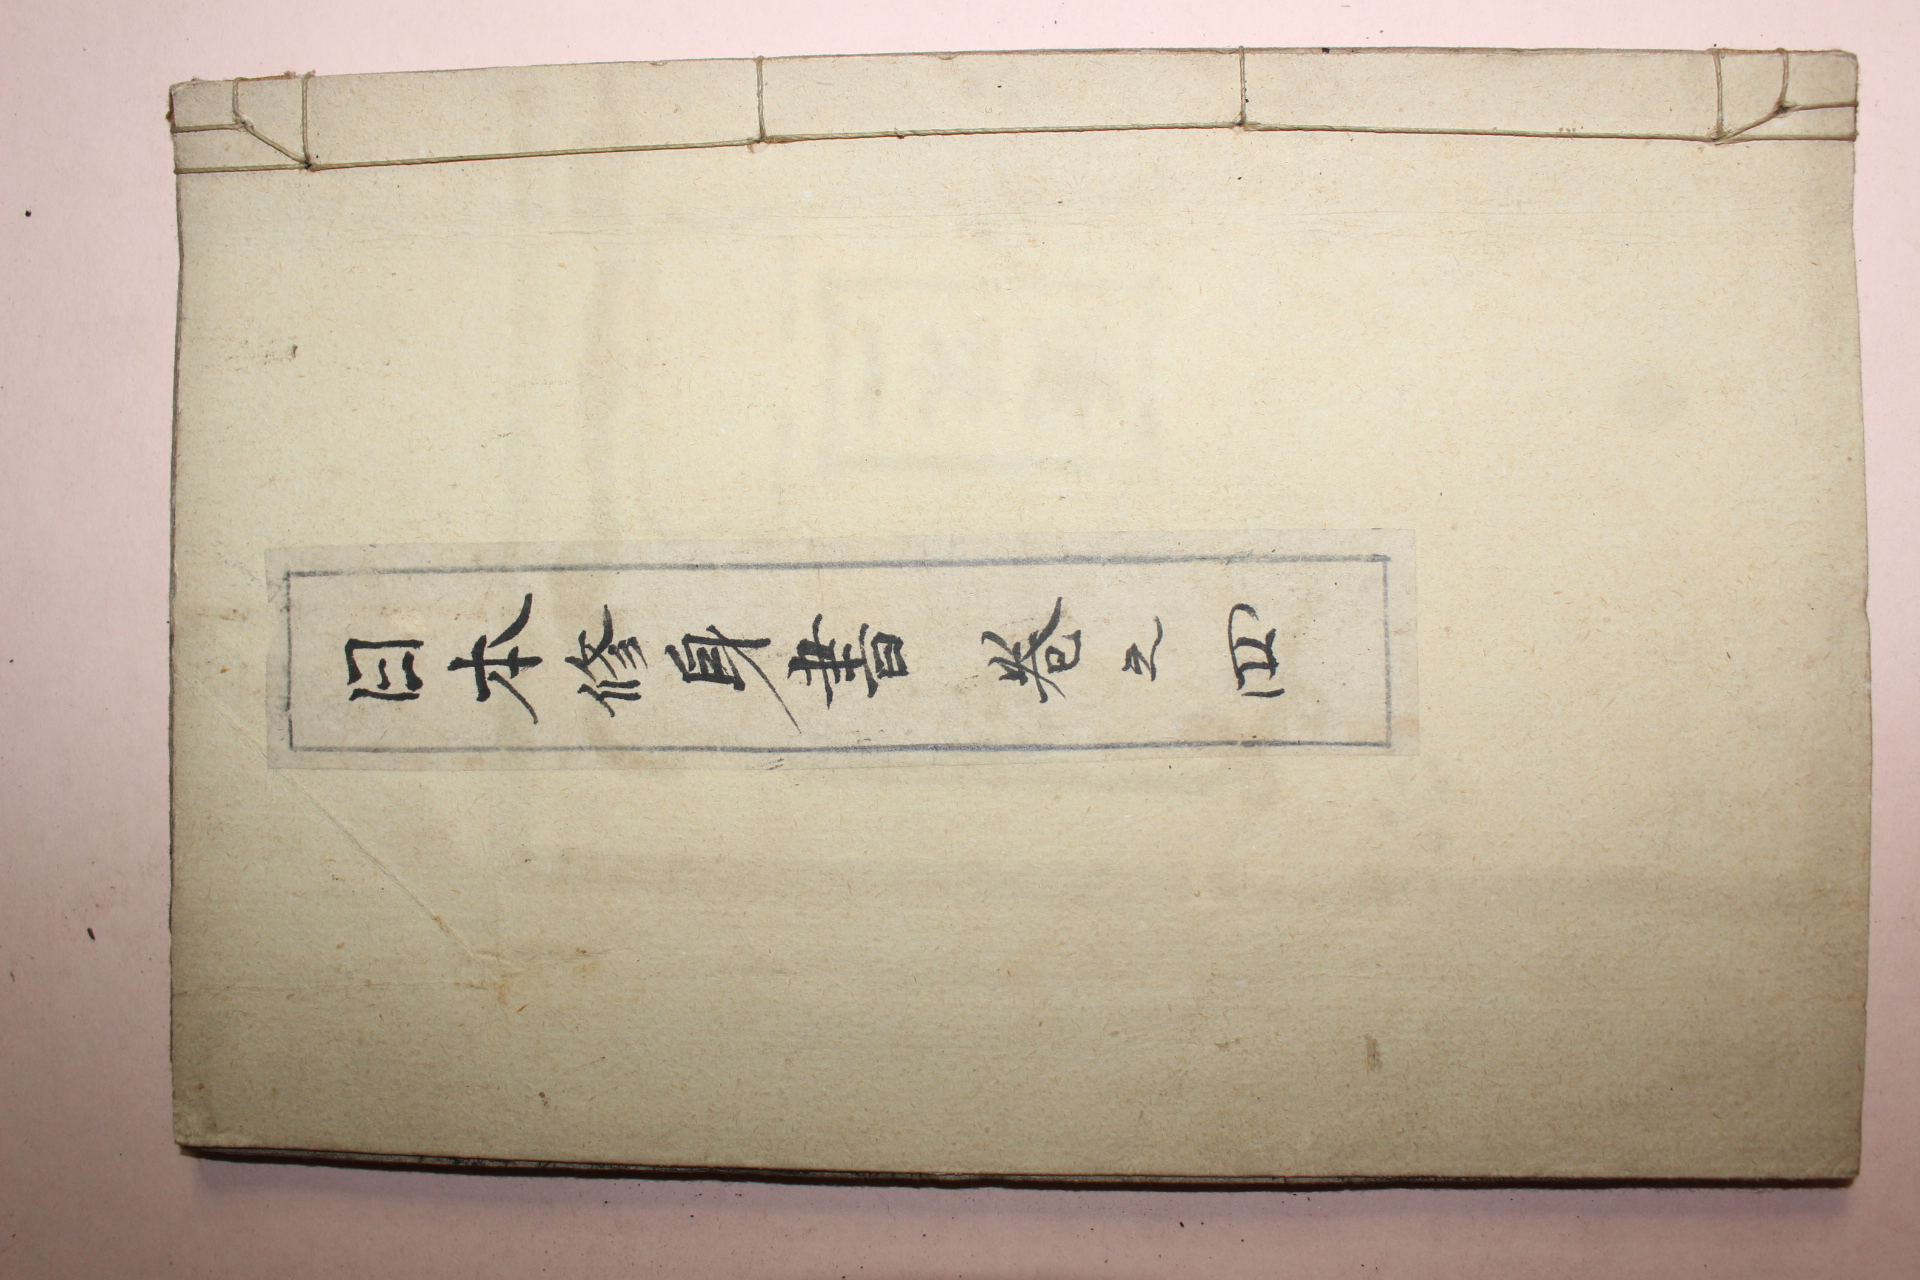 日本修身書 巻之四